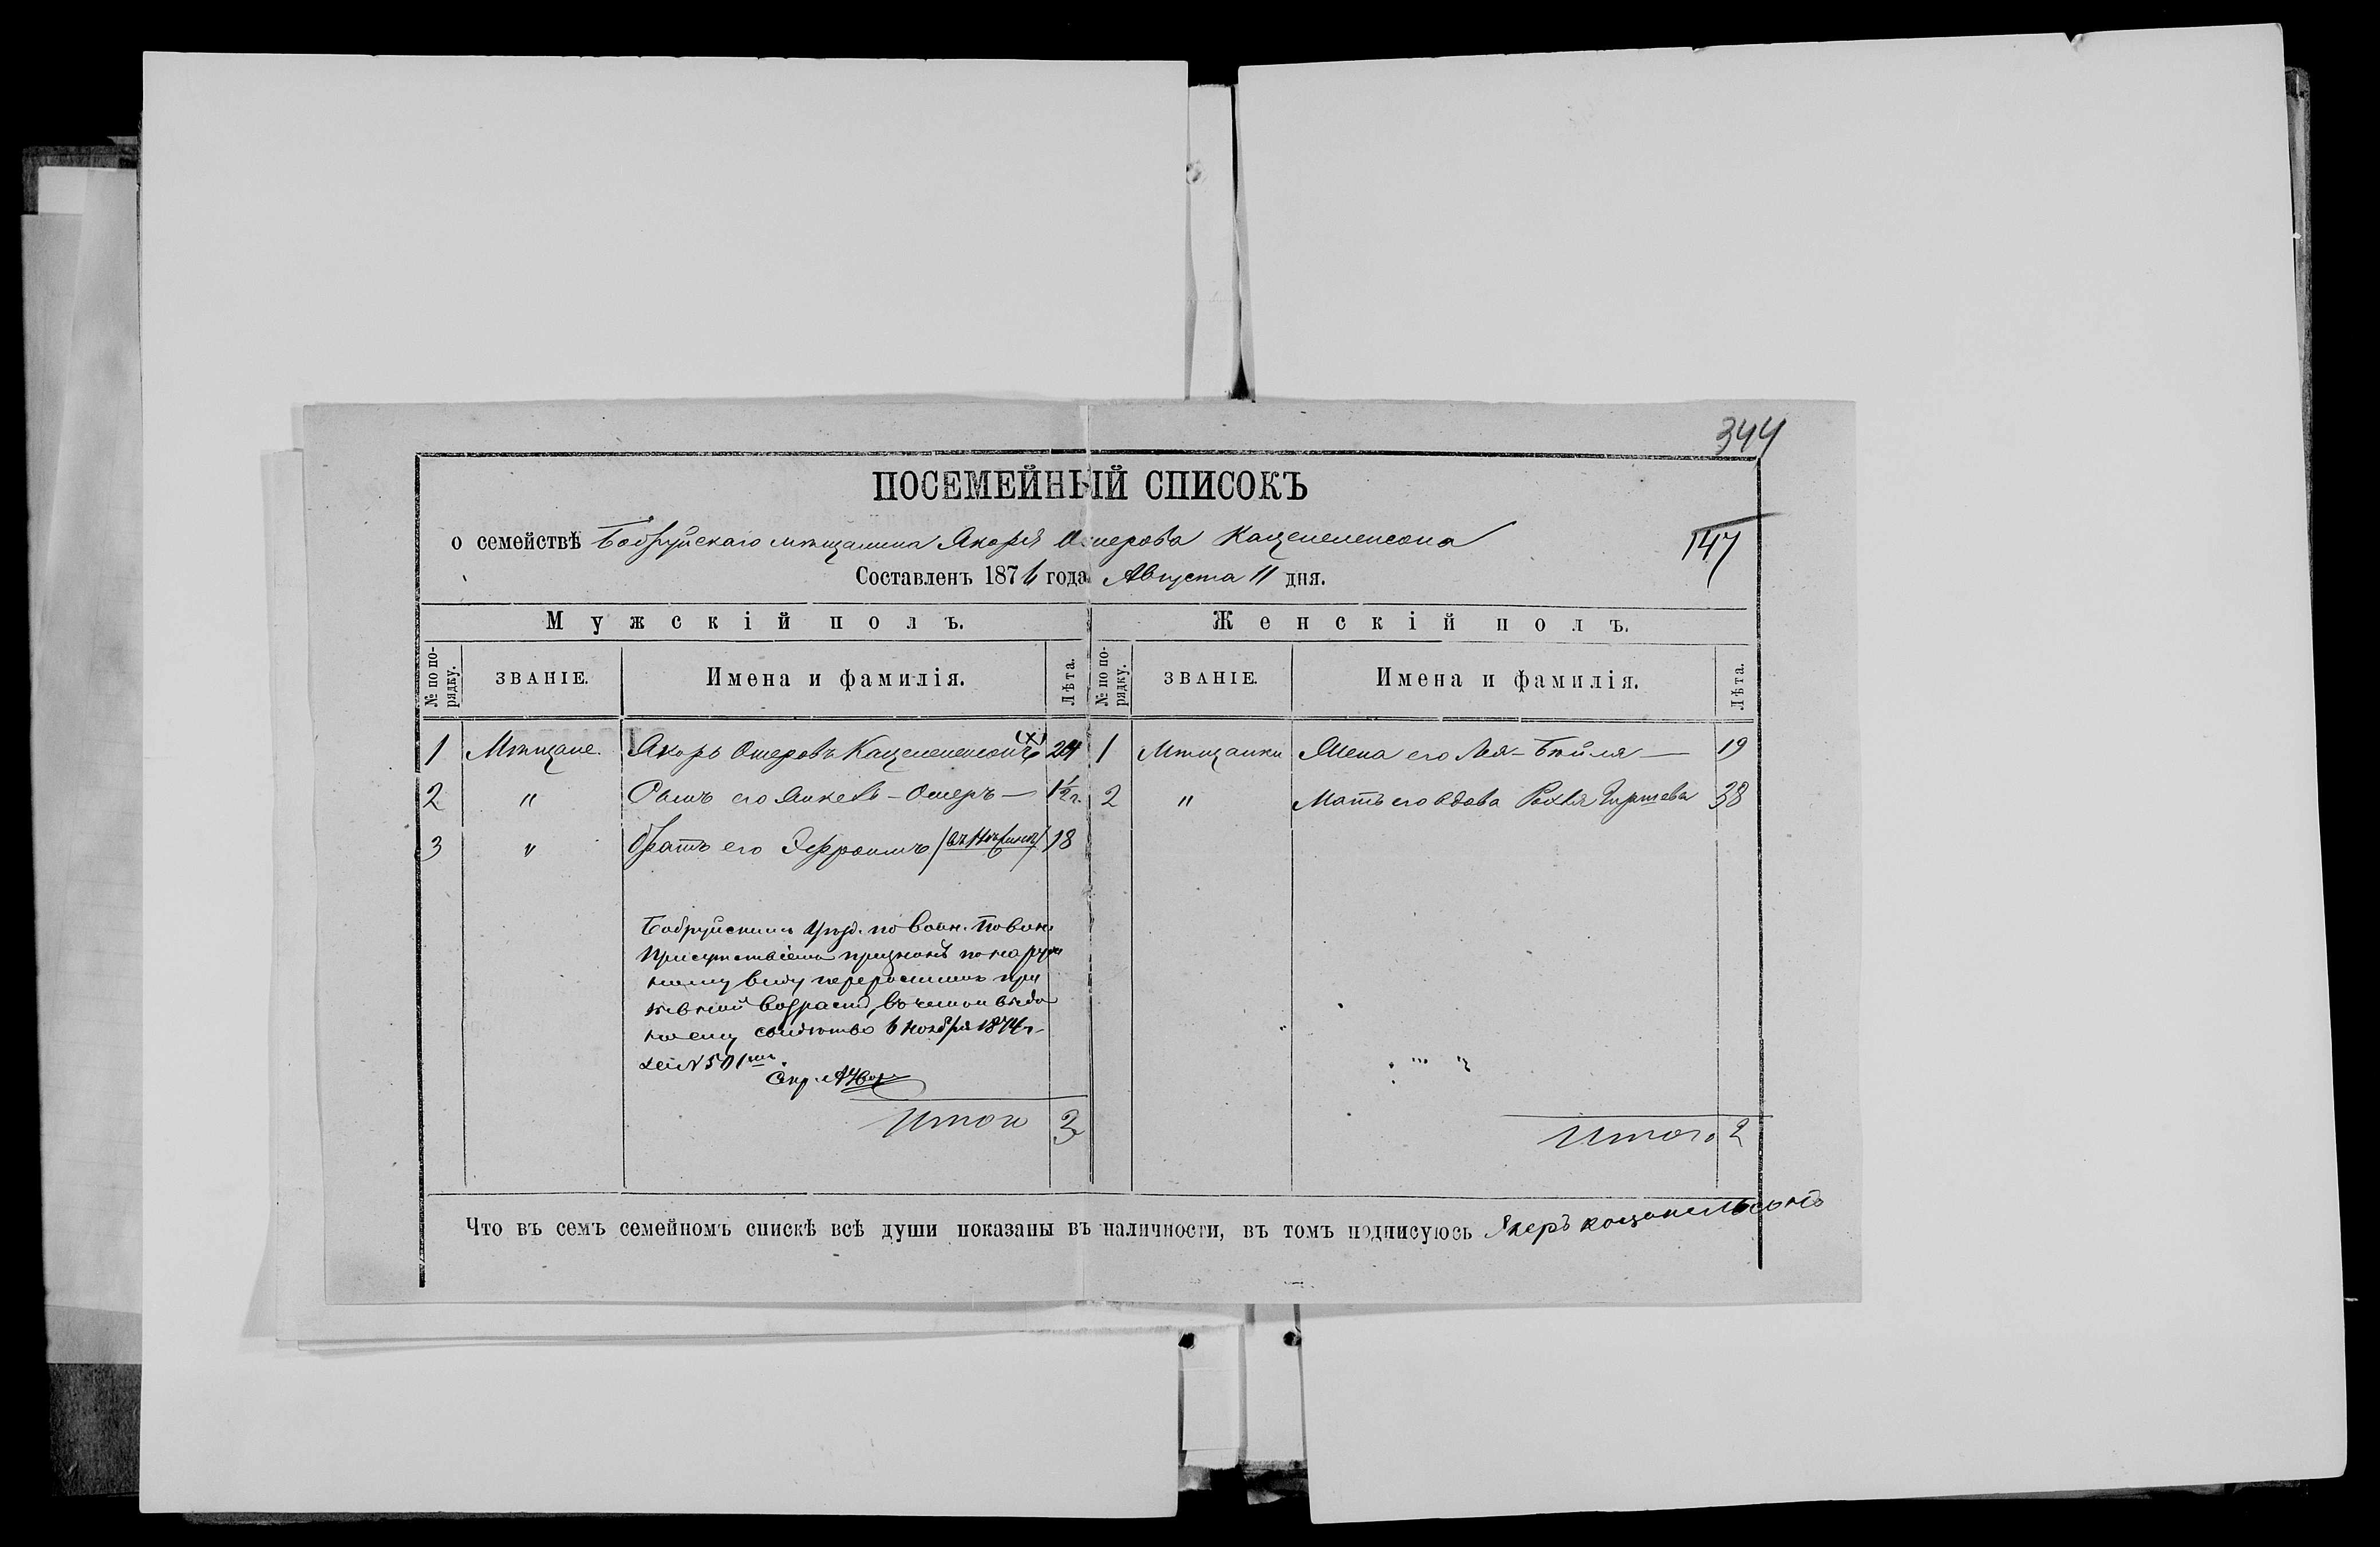 344
ПОСЕМЕЙНЫЙ СПИСОКЪ
о семействѣ Бобруйскаго мѣщанина Якоря Ошерова Каценеленсона
147
Составленъ 1874 года Августа 11 дня.
Мужскій полъ. Женскій полъ.
№ по порядку. ЗВАНІЕ. Имена и фамилія. Лѣта. № по порядку. ЗВАНІЕ. Имена и фамилія. Лѣта.
1 Мѣщане. Якорь Ошеровъ Каценеленсонъ (х) 24 1 Мѣщанки Жена его Лея-Бейля — 19
2 " Сынъ его Янкель-Ошеръ — 1½ г. 2 " Мать его вдова Рохля Гиршева 38
3 " Братъ его Эфроимъ 18
Бобруйскимъ Уѣзд. по Воин. Повин.
Присутствіемъ признанъ по наруж
ному виду
возрастъ, въ чемъ и выда
но ему 6 Ноября 1874 г.
№ 501
Итого 3 Итого 2
Что въ семъ семейномъ спискѣ всѣ души показаны въ наличности, въ томъ подписуюсь Якеръ каценельсонъ